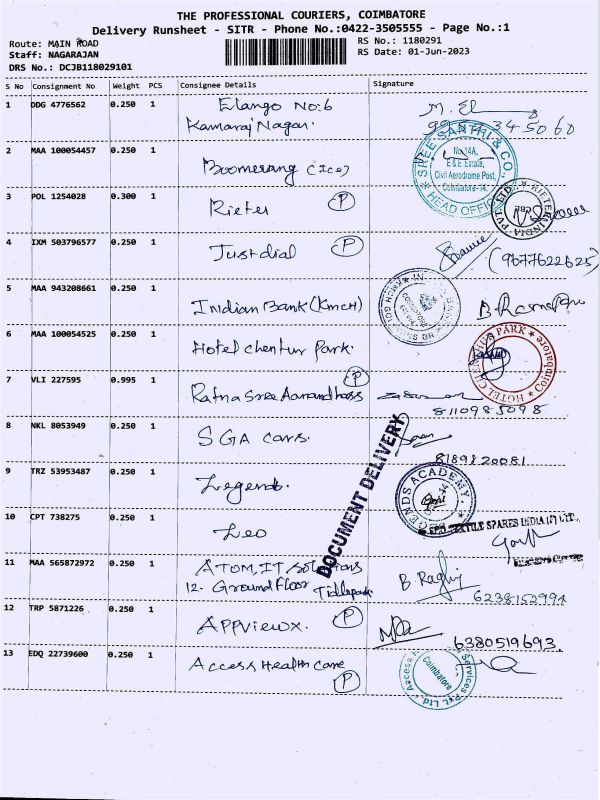 THE PROFESSIONAL COURIERS, COIMBATORE
Delivery Runsheet - SITR - Phone No.:0422-3505555 - Page No.:1
Route: MAIN ROAD
RS No.: 1180291
Staff: NAGARAJAN
RS Date: 01-Jun-2023
DRS No.: DCJB118029101
S No Consignment No Weight PCS Consignee Details Signature
1 DDG 4776562 0.250 1 Elango No:6
Kamaraj Nagar.
M. El
SREE SANTHI & CO.
No.14A,
E & E Estate,
Civil Aerodrome Post,
Coimbatore-14.
HEAD OFFICE
2 MAA 100054457 0.250 1 Boomerang (Ice)
3 POL 1254028 0.300 1 Rieter P
RIETER INDIA PVT. LTD.
CBE
4 IXM 503796577 0.250 1 Justdial P
(9677622625)
5 MAA 943208661 0.250 1 Indian Bank (KMCH)
6 MAA 100054525 0.250 1 Hotel chentur Park.
HOTEL CHENTHUR PARK
Coimbatore
7 VLI 227595 0.995 1 Ratna Sree Aanandhaas P
8110985098
8 NKL 8053949 0.250 1 SGA cars.
8189820081
DOCUMENT DELIVERY
9 TRZ 53953487 0.250 1 Legends.
LEGENDS ACADEMY
10 CPT 738275 0.250 1 Leo
TEXTILE SPARES INDIA (P) LTD.,
11 MAA 565872972 0.250 1 ATOM,IT Solutions
12. Ground Floor Tidlepark.
B. Raghj
6238152994
12 TRP 5871226 0.250 1 APPviewx. P
6380519693.
13 EDQ 22739600 0.250 1 Access Health care
P
Coimbatore
Services Pvt. Ltd.